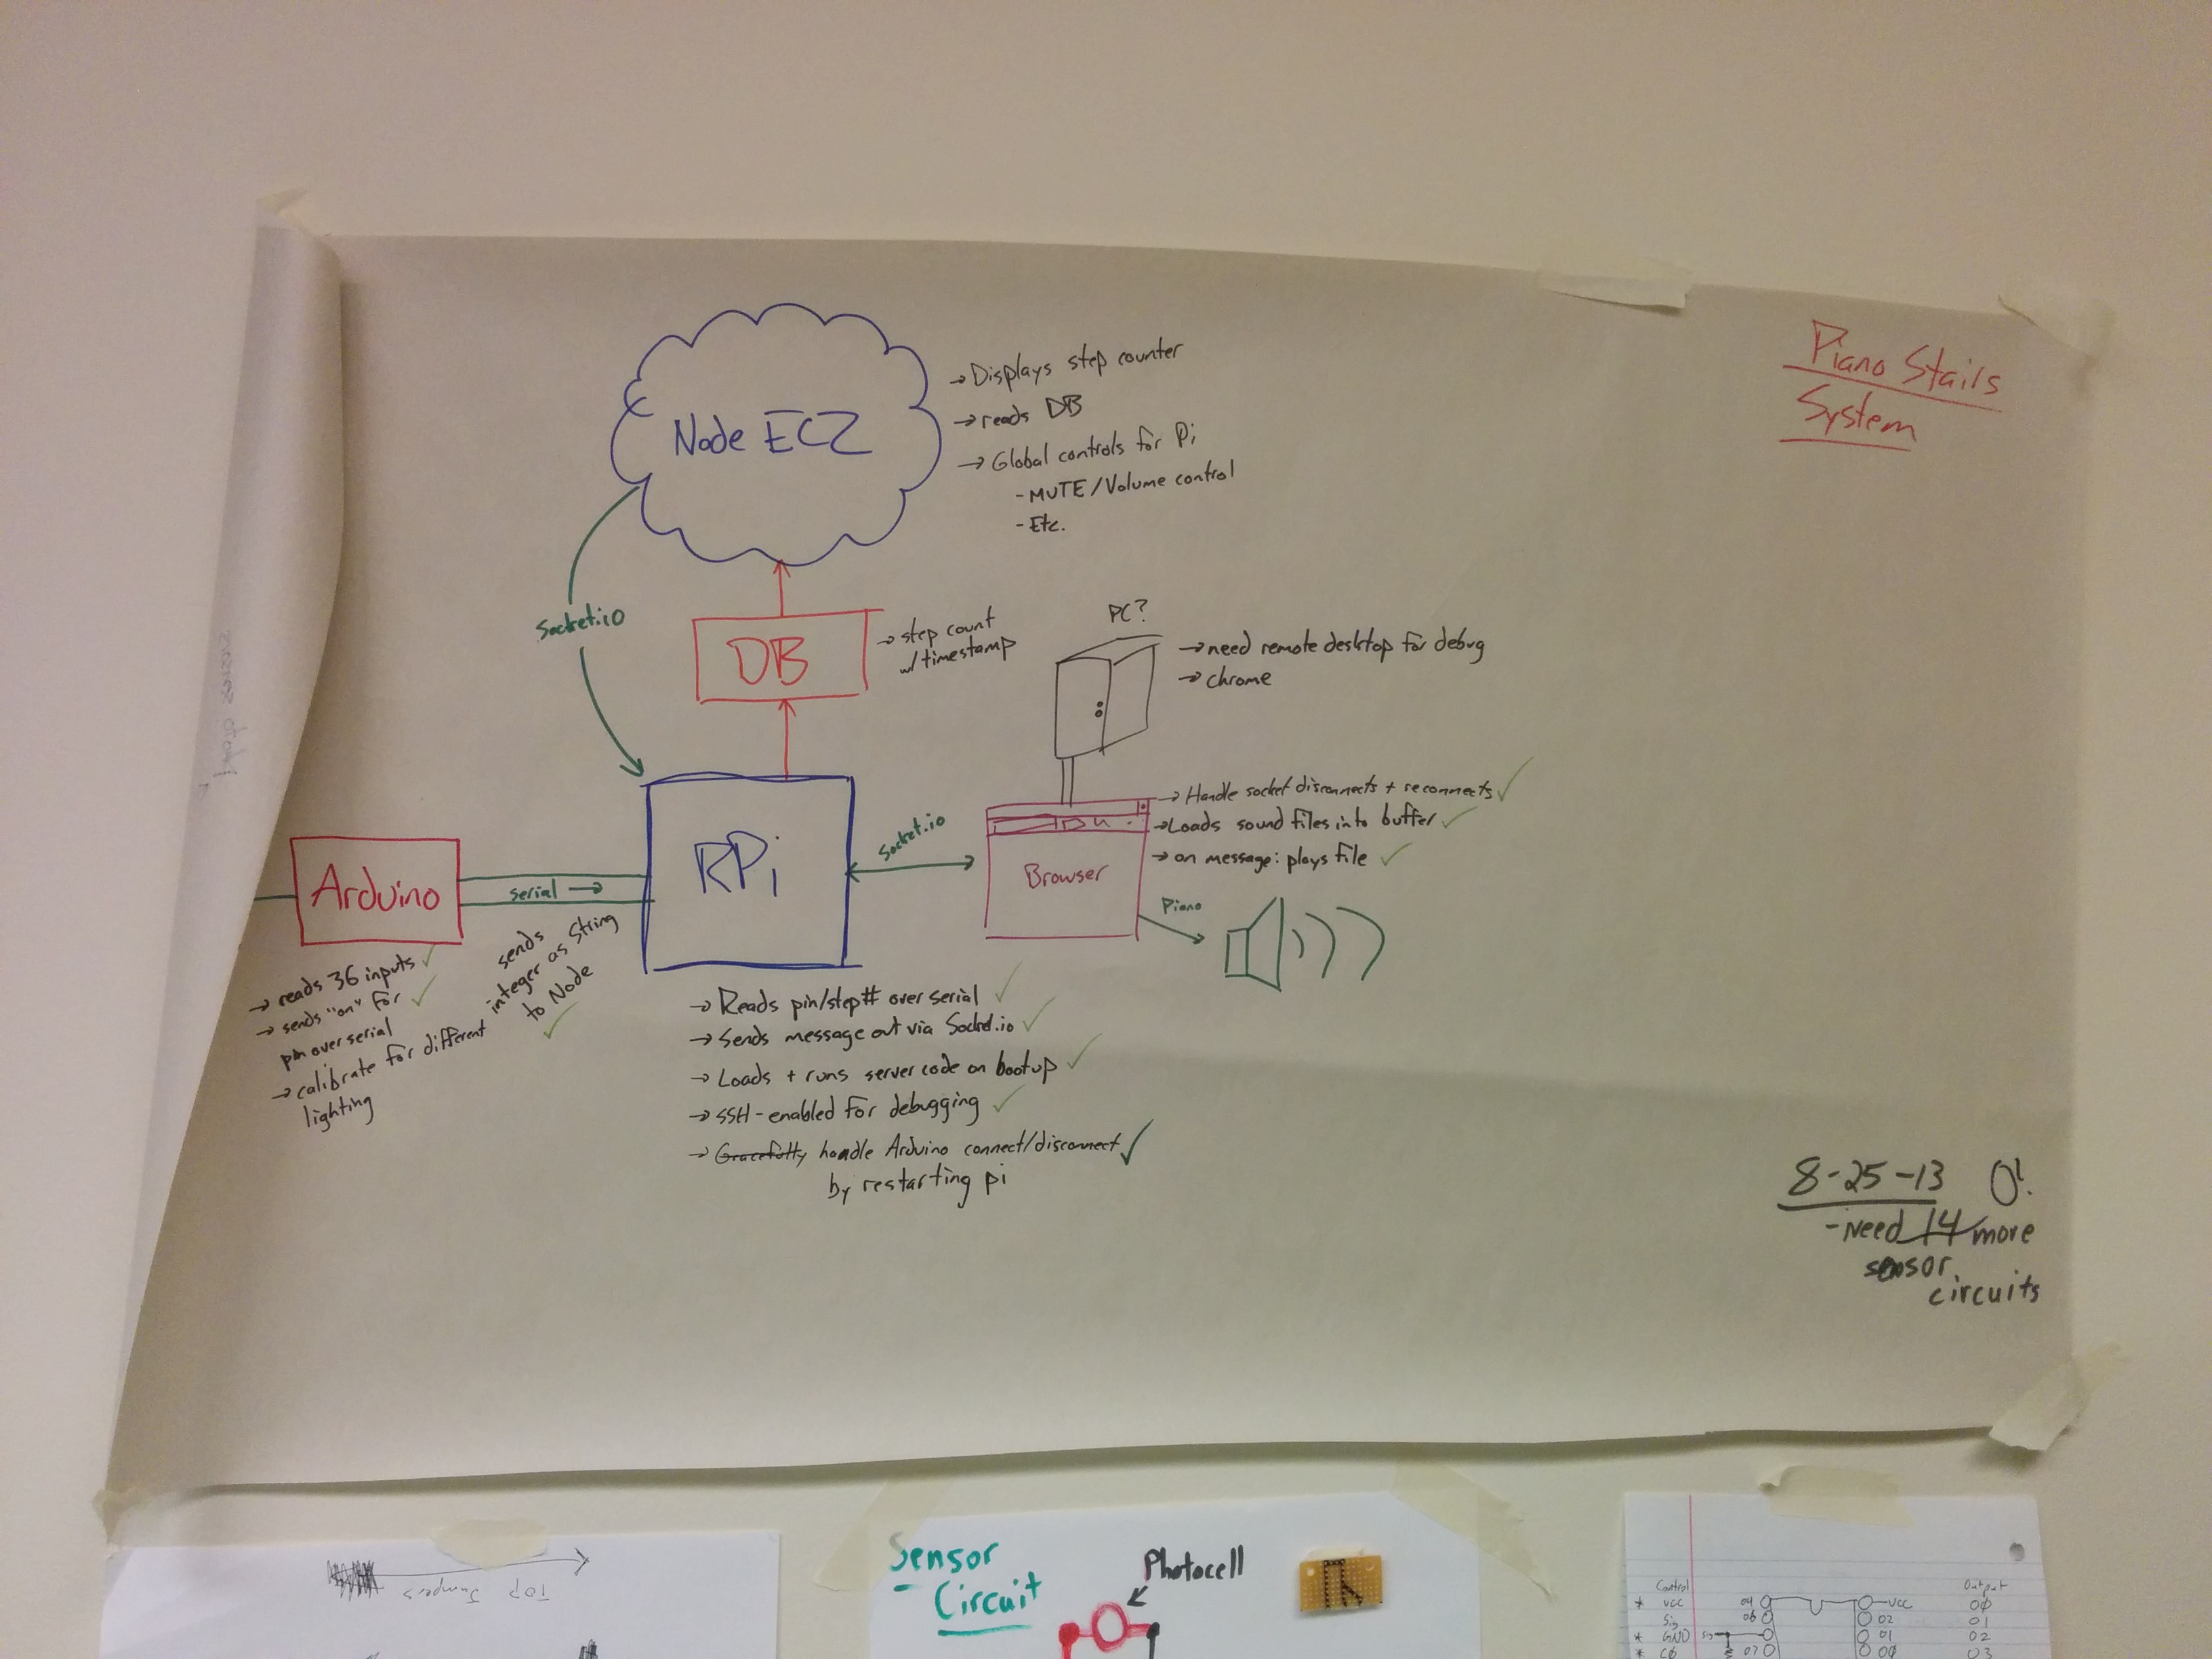 Piano Stairs
System
Node EC2
→ Displays step counter
→ reads DB
→ Global controls for Pi
- MUTE/Volume control
- Etc.
Socket.io
DB
→ step count
w/timestamp
PC?
→ need remote desktop for debug
→ chrome
Arduino
serial →
RPi
Socket.io
Browser
→ Handle socket disconnects + reconnects ✓
→ Loads sound files into buffer ✓
→ on message: plays file ✓
Piano
→ reads 36 inputs ✓
→ sends "on" for ✓
pin over serial
→ calibrate for different
lighting
sends
integer as String
to Node ✓
→ Reads pin/step# over serial ✓
→ Sends message out via Socket.io ✓
→ Loads + runs server code on bootup ✓
→ SSH-enabled for debugging ✓
→ Gracefully handle Arduino connect/disconnect ✓
by restarting pi
8-25-13 0!
- Need 14 more
sensor
circuits
Top Jumpers
Sensor
Circuit
Photocell
Control
Output
* VCC
04
VCC
00
Sig
06
02
01
* GND
Sig
01
02
* C0
07
00
03